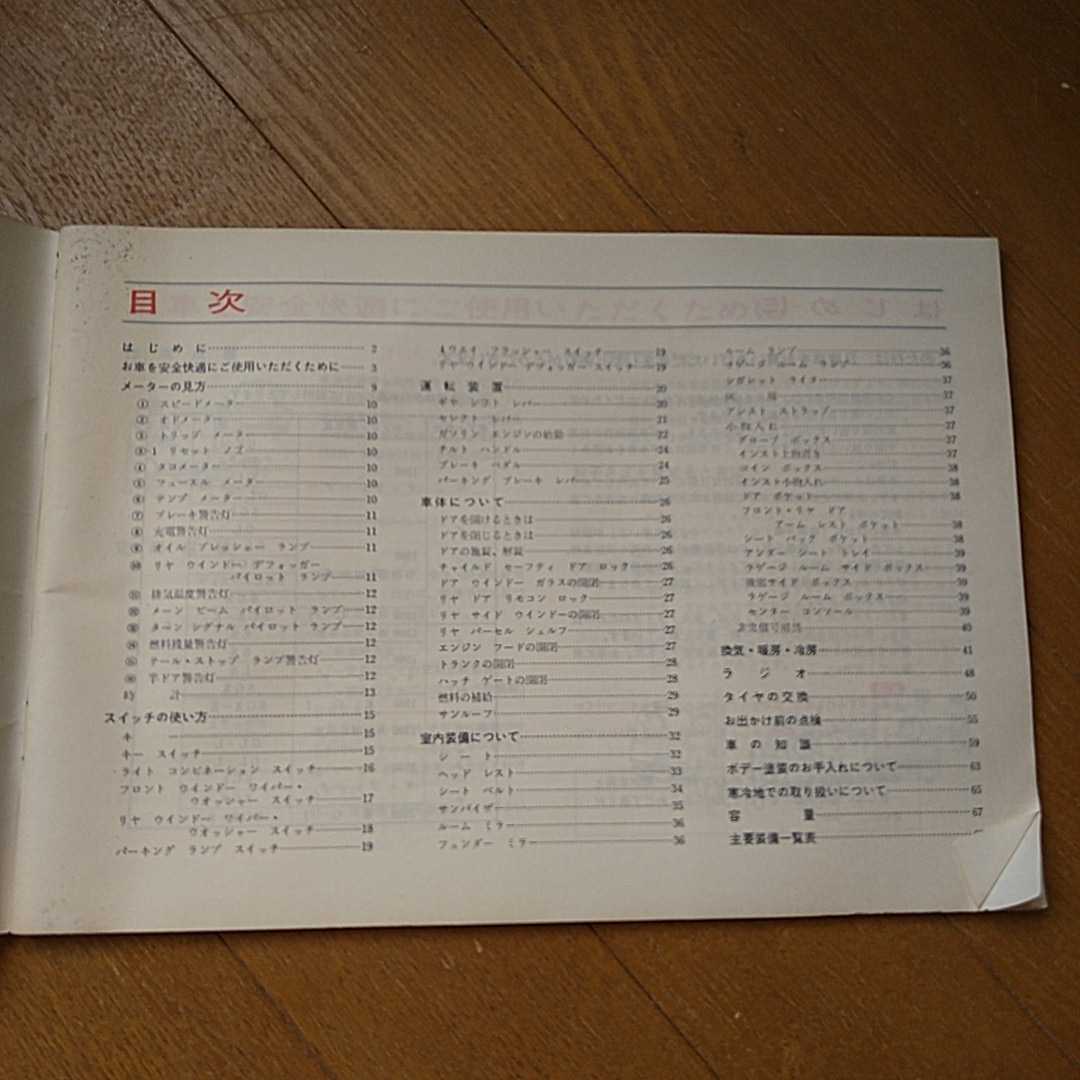 目次
はじめに 2
お車を安全快適にご使用いただくために 3
メーターの見方 9
① スピードメーター 10
② オドメーター 10
③ トリップ メーター 10
③-1 リセット ノブ 10
④ タコメーター 10
⑤ フューエル メーター 10
⑥ テンプ メーター 10
⑦ ブレーキ警告灯 11
⑧ 充電警告灯 11
⑨ オイル プレッシャー ランプ 11
⑩ リヤ ウインドー デフォッガー
パイロット ランプ 11
⑪ 排気温度警告灯 12
⑫ メーン ビーム パイロット ランプ 12
⑬ ターン シグナル パイロット ランプ 12
⑭ 燃料残量警告灯 12
⑮ テール・ストップ ランプ警告灯 12
⑯ 半ドア警告灯 12
時計 13
スイッチの使い方 15
キー 15
キー スイッチ 15
ライト コンビネーション スイッチ 16
フロント ウインドー ワイパー・
ウオッシャー スイッチ 17
リヤ ウインドー ワイパー・
ウオッシャー スイッチ 18
パーキング ランプ スイッチ 19
4ウエイ フラッシャー スイッチ 19
リヤ ウインドー デフォッガー スイッチ 19
運転装置 20
ギヤ シフト レバー 20
セレクト レバー 21
ガソリン エンジンの始動 22
チルト ハンドル 24
ブレーキ ペダル 24
パーキング ブレーキ レバー 25
車体について 26
ドアを開けるときは 26
ドアを閉じるときは 26
ドアの施錠、解錠 26
チャイルド セーフティ ドア ロック 26
ドア ウインドー ガラスの開閉 27
リヤ ドア リモコン ロック 27
リヤ サイド ウインドーの開閉 27
リヤ パーセル シェルフ 27
エンジン フードの開閉 27
トランクの開閉 28
ハッチ ゲートの開閉 28
燃料の補給 29
サンルーフ 29
室内装備について 32
シート 32
ヘッド レスト 33
シート ベルト 34
サンバイザ 35
ルーム ミラー 36
フェンダー ミラー 36
ルーム ランプ 36
ラゲージ ルーム ランプ 36
シガレット ライター 37
灰皿 37
アシスト ストラップ 37
小物入れ 37
グローブ ボックス 37
インスト上物置き 37
コイン ボックス 38
インスト小物入れ 38
ドア ポケット 38
フロント・リヤ ドア
アーム レスト ポケット 38
シート バック ポケット 38
アンダー シート トレイ 39
ラゲージ ルーム サイド ボックス 39
後部サイド ボックス 39
ラゲージ ルーム ボックス 39
センター コンソール 39
非常信号用具 40
換気・暖房・冷房 41
ラジオ 48
タイヤの交換 50
お出かけ前の点検 55
車の知識 59
ボデー塗装のお手入れについて 63
寒冷地での取り扱いについて 65
容量 67
主要装備一覧表